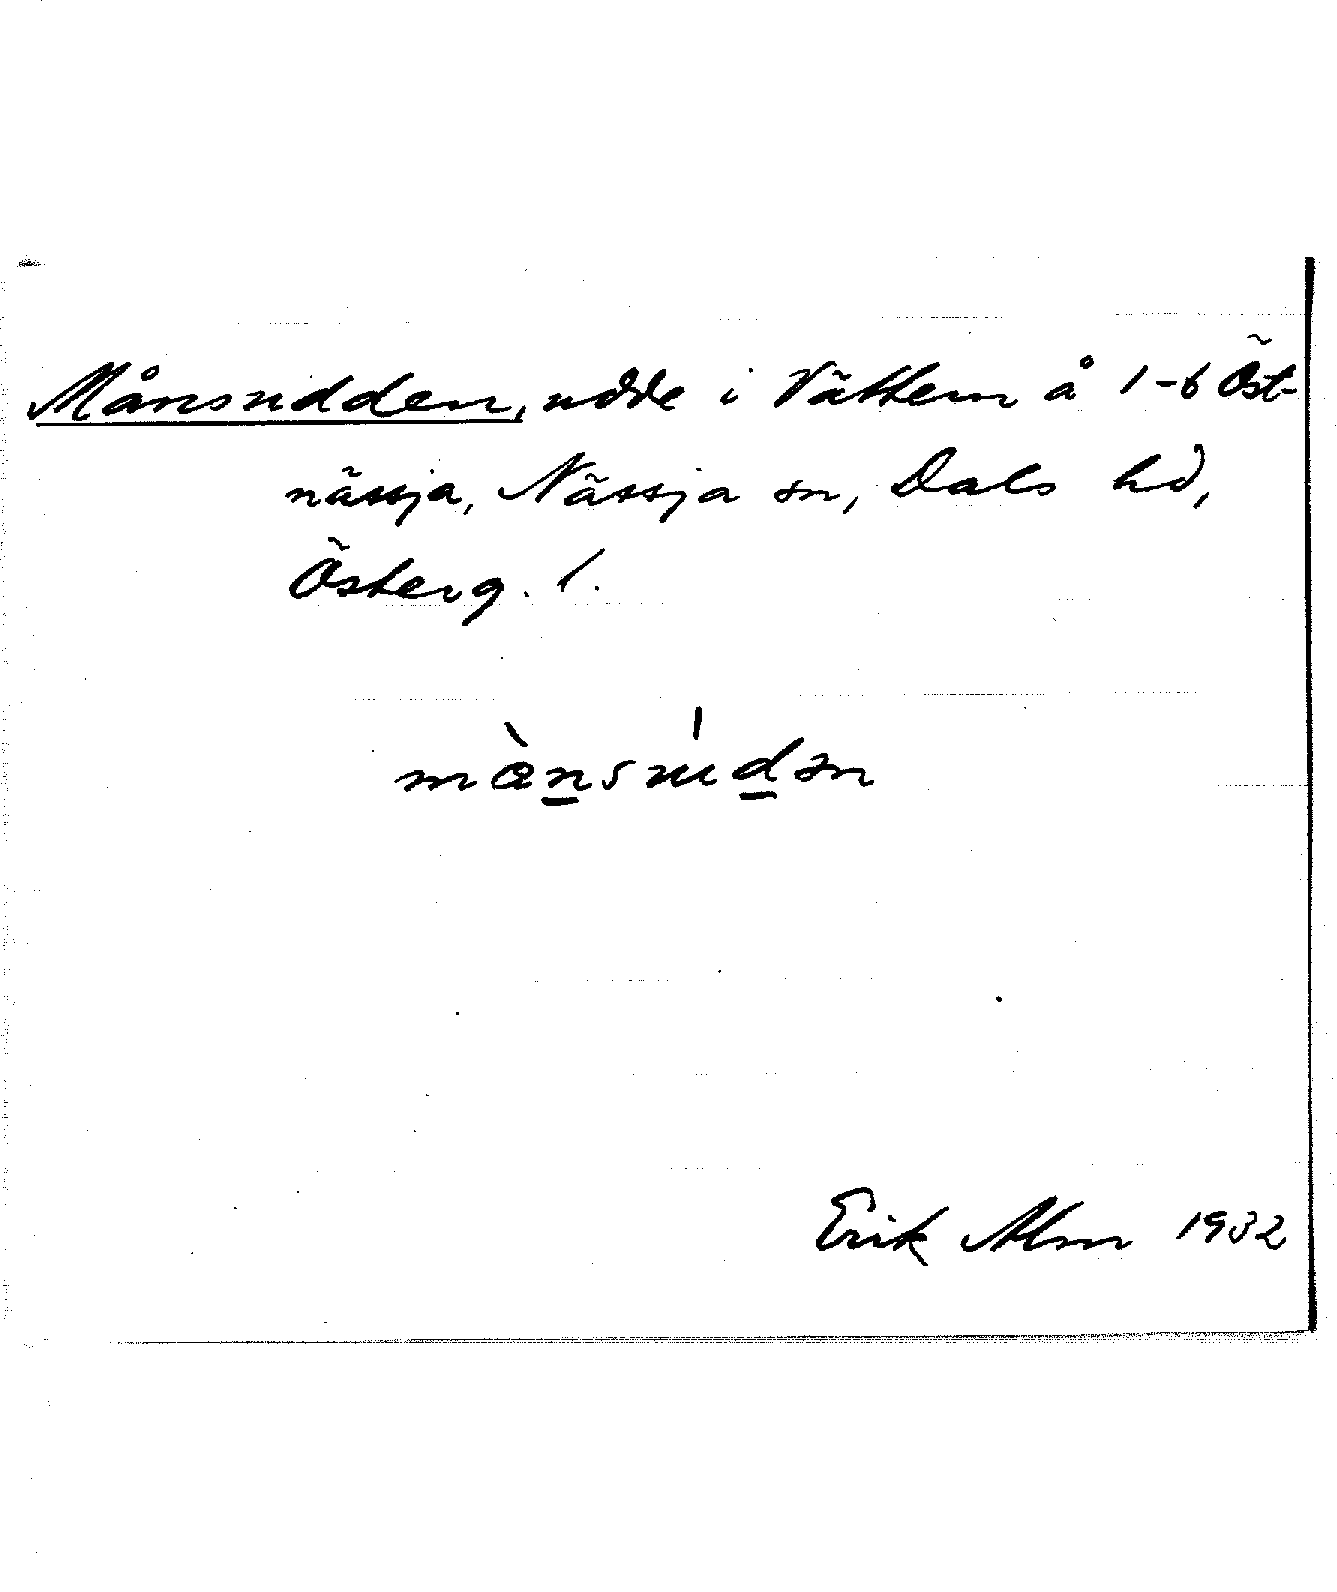 Månsudden, udde i Vättern å 1-6 Öst-
nässja, Nässja sn, Dals hd,
Österg. l.
mànsùdən
Erik Alm 1932